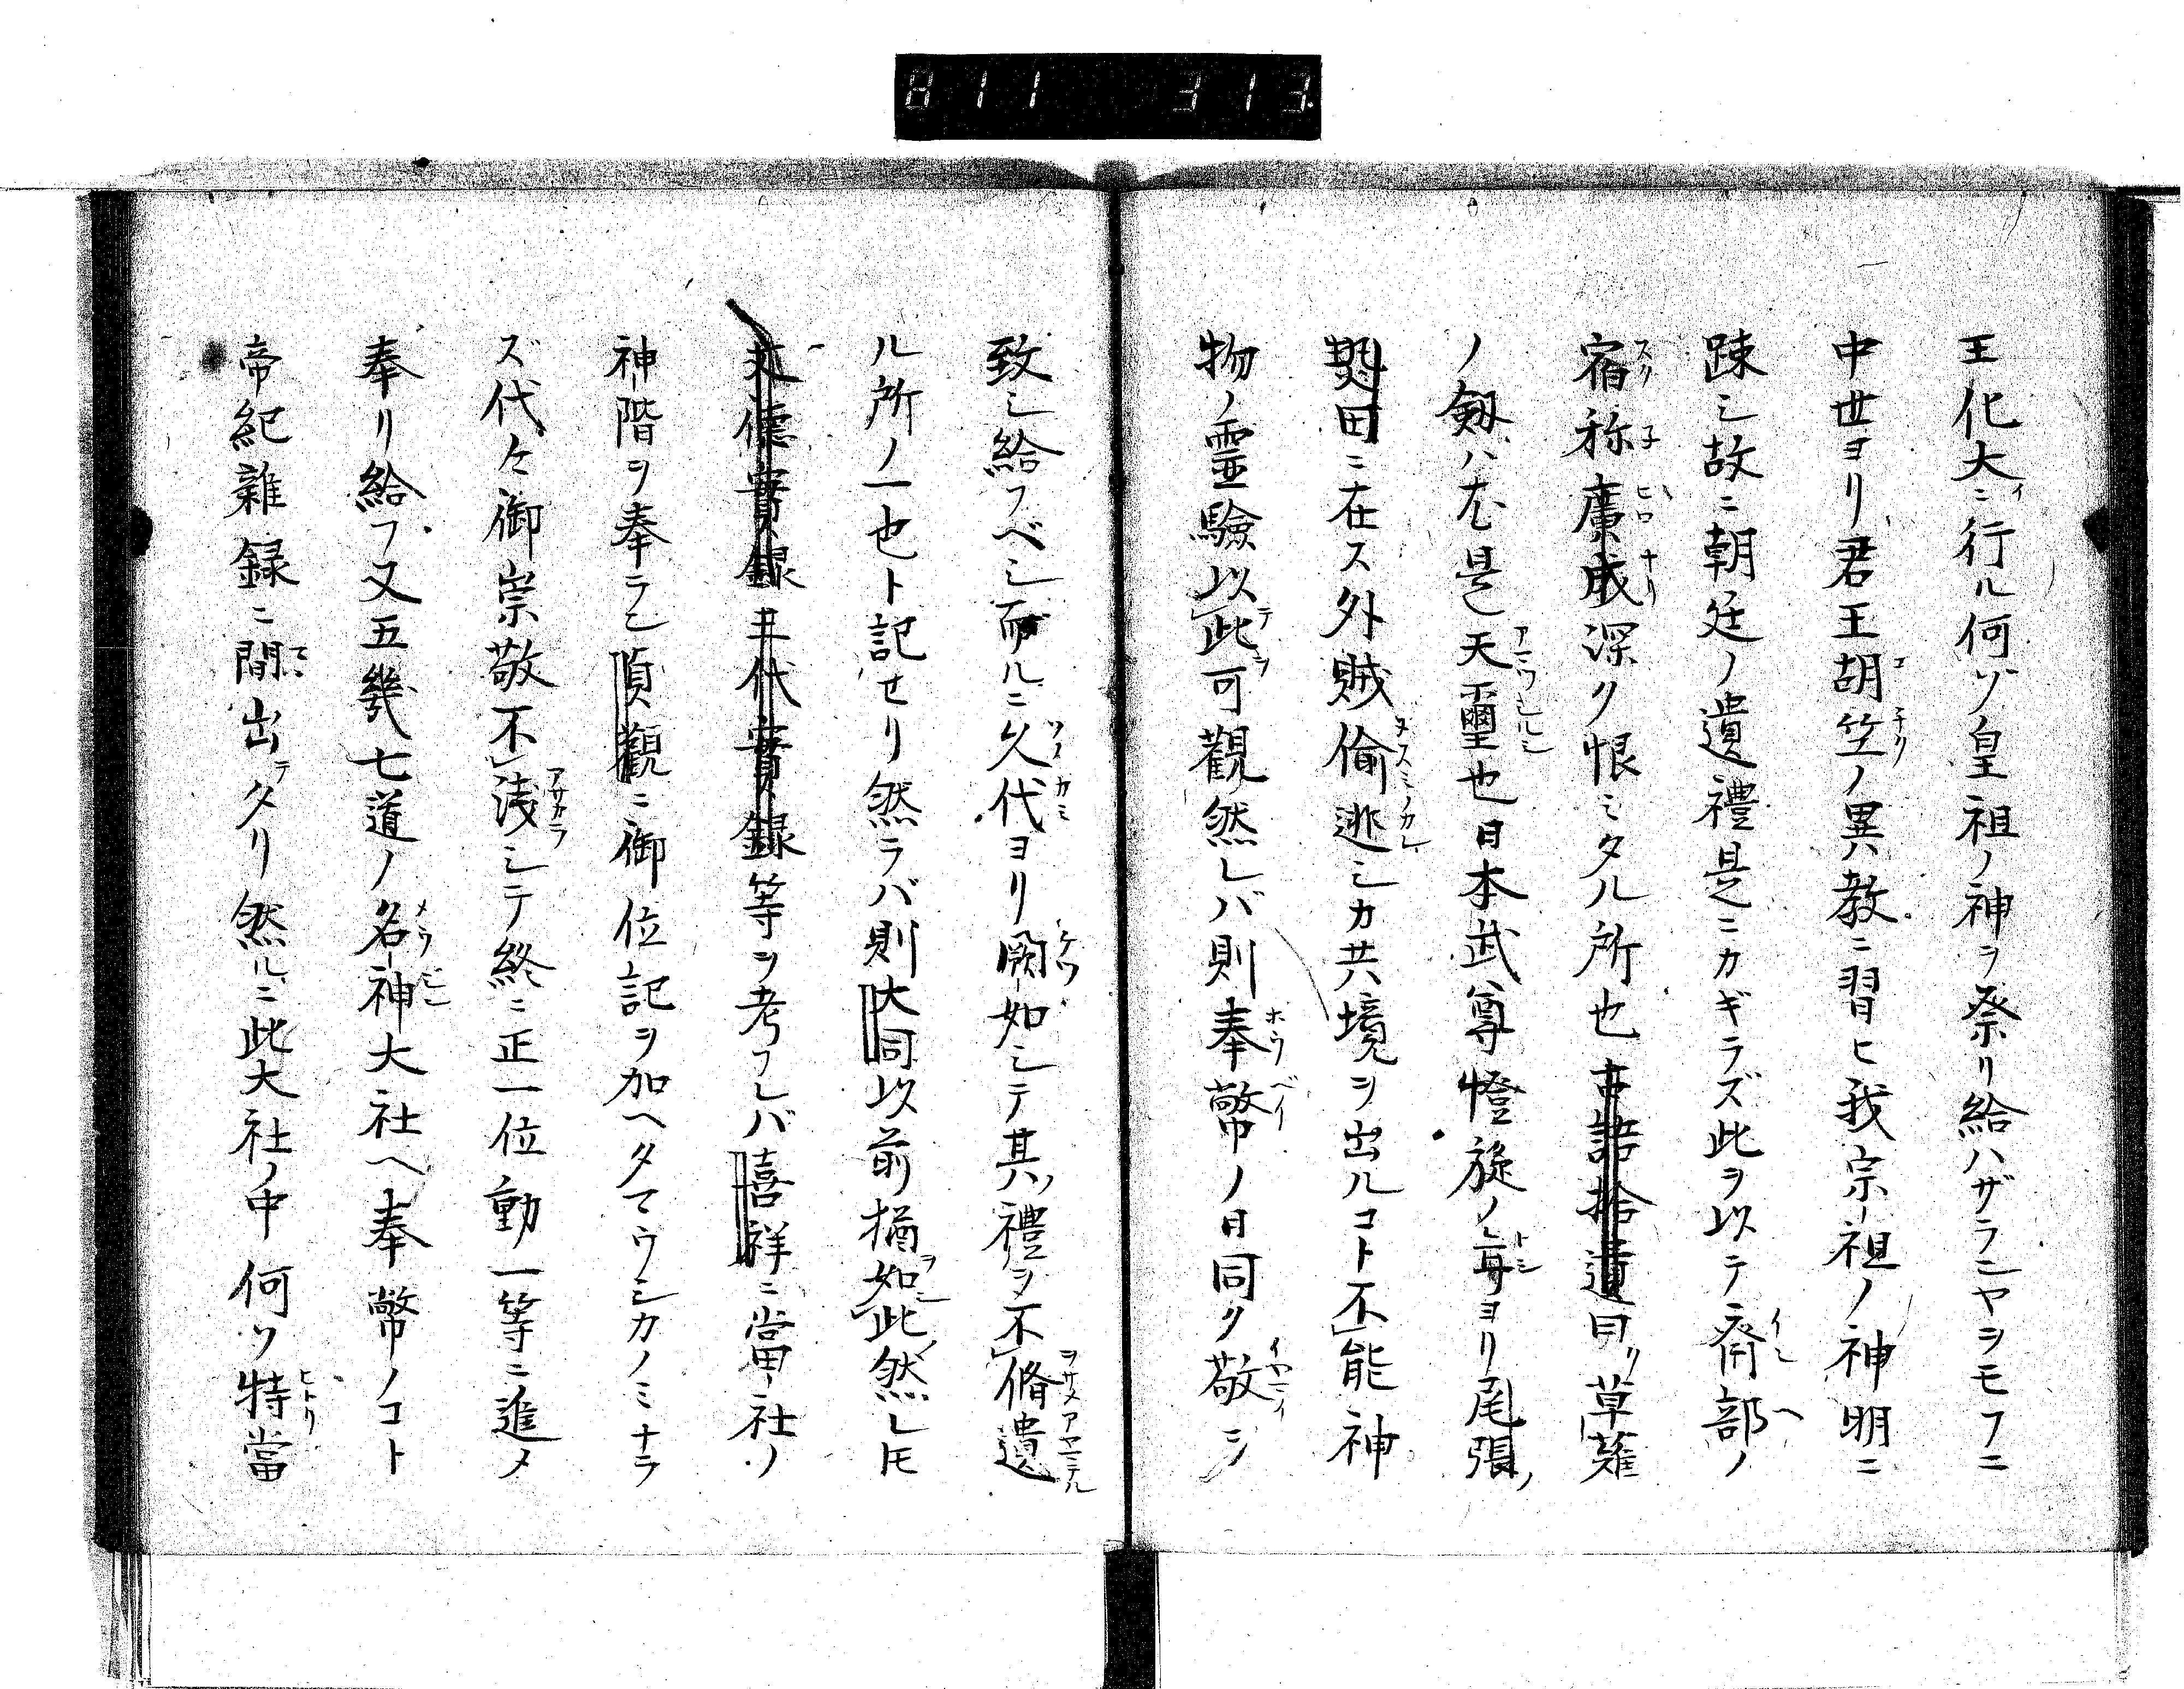 811 313
王化大イニ行ル何ゾ皇祖ノ神ヲ祭リ給ハザランヤヲモフニ
中世ヨリ君王胡竺ノ異教ニ習ヒ我宗祖ノ神明ニ
踈シ故ニ朝廷ノ遺禮是ニカギラズ此ヲ以テ齊部ノ
宿祢廣成深ク恨ミタル所也古語拾遺曰ク草薙
ノ剱ハ尤是天璽也日本武尊愷旋ノ年ヨリ尾張ノ
熱田ニ在ス外賊偷逃シカ共境ヲ出ルコト不能神
物ノ靈驗以此可觀然レバ則奉幣ノ日同ク敬ヲ
致シ給フベシ而ルニ久代ヨリ闕如シテ其ノ禮ヲ不脩遺
ル所ノ一也ト記せリ然ラバ則大同以前猶如此然レ𪜈
文德實録三代實録等ヲ考フレバ嘉祥ニ當社ノ
神階ヲ奉ラレ貞觀ニ御位記ヲ加ヘタマウシカノミナラ
ズ代々御崇敬不浅シテ終ニ正一位勲一等ニ進メ
奉リ給フ又五畿七道ノ名神大社ヘ奉幣ノコト
帝紀雜録ニ間出テタリ然ルニ此大社ノ中何ソ特當